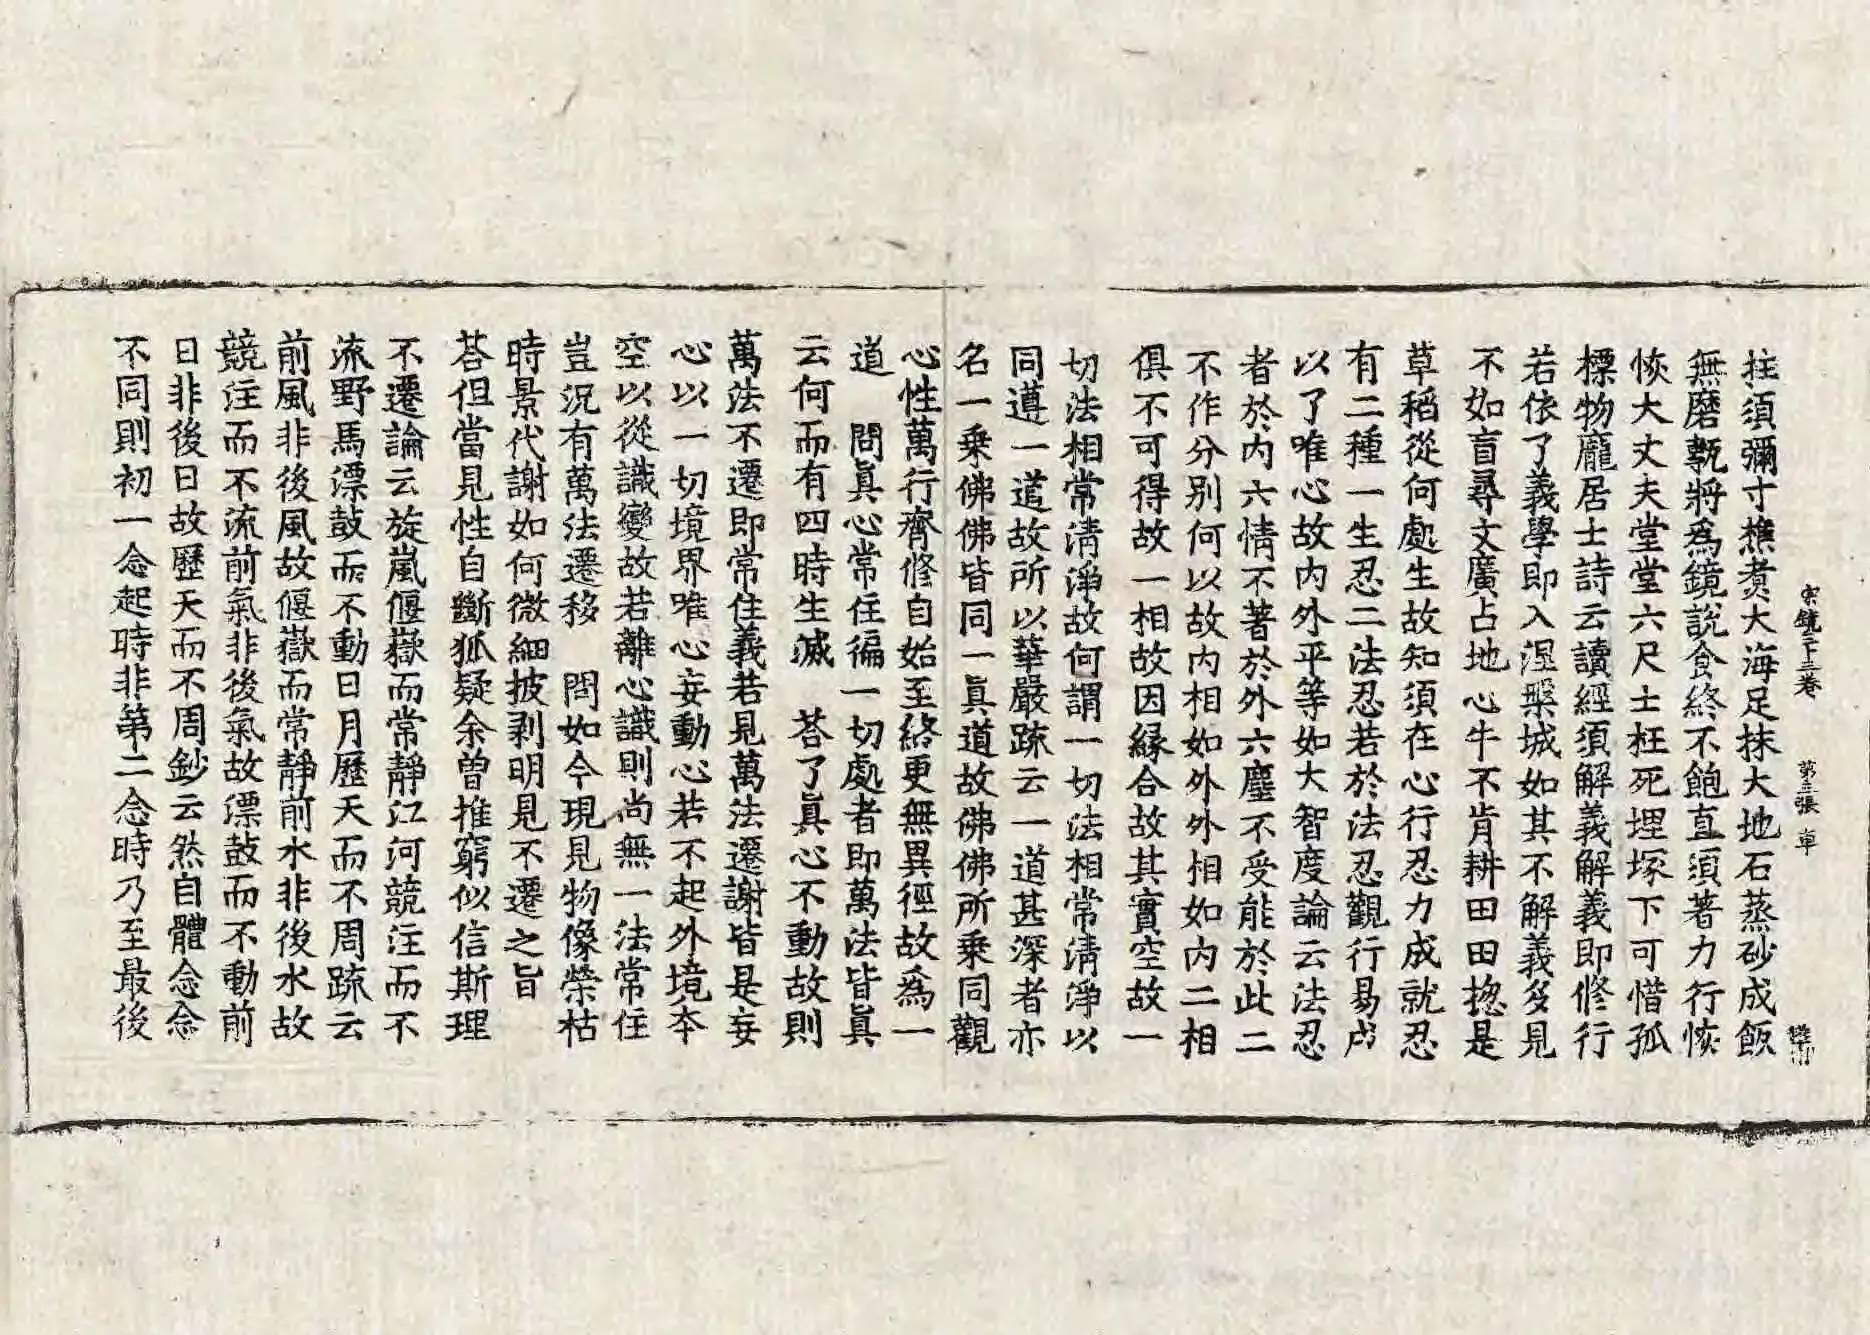 宗鏡三十三卷 第三張 車
拄須彌寸樵煑大海足抹大地石蒸砂成飯
無磨甎將爲鏡說食終不飽直須著力行恢
恢大丈夫堂堂六尺士枉死埋塚下可惜孤
標物龐居士詩云讀經須解義解義即修行
若依了義學即入涅槃城如其不解義多見
不如盲尋文廣占地心牛不肯耕田田揔是
草稻從何處生故知須在心行忍力成就忍
有二種一生忍二法忍若於法忍觀行易成
以了唯心故内外平等如大智度論云法忍
者於内六情不著於外六塵不受能於此二
不作分別何以故内相如外外相如内二相
俱不可得故一相故因緣合故其實空故一
切法相常清淨故何謂一切法相常清淨以
同遵一道故所以華嚴䟽云一道甚深者亦
名一乘佛佛皆同一眞道故佛佛所乘同觀
心性萬行齊修自始至終更無異徑故爲一
道　問眞心常住徧一切處者即萬法皆眞
云何而有四時生滅　荅了眞心不動故則
萬法不遷即常住義若見萬法遷謝皆是妄
心以一切境界唯心妄動心若不起外境本
空以從識變故若離心識則尚無一法常住
豈況有萬法遷移　問如今現見物像榮枯
時景代謝如何微細披剥明見不遷之旨
荅但當見性自斷狐疑余曾推窮似信斯理
不遷論云旋嵐偃嶽而常靜江河競注而不
流野馬漂鼓而不動日月歷天而不周䟽云
前風非後風故偃嶽而常靜前水非後水故
競注而不流前氣非後氣故漂鼓而不動前
日非後日故歷天而不周鈔云然自體念念
不同則初一念起時非第二念時乃至最後